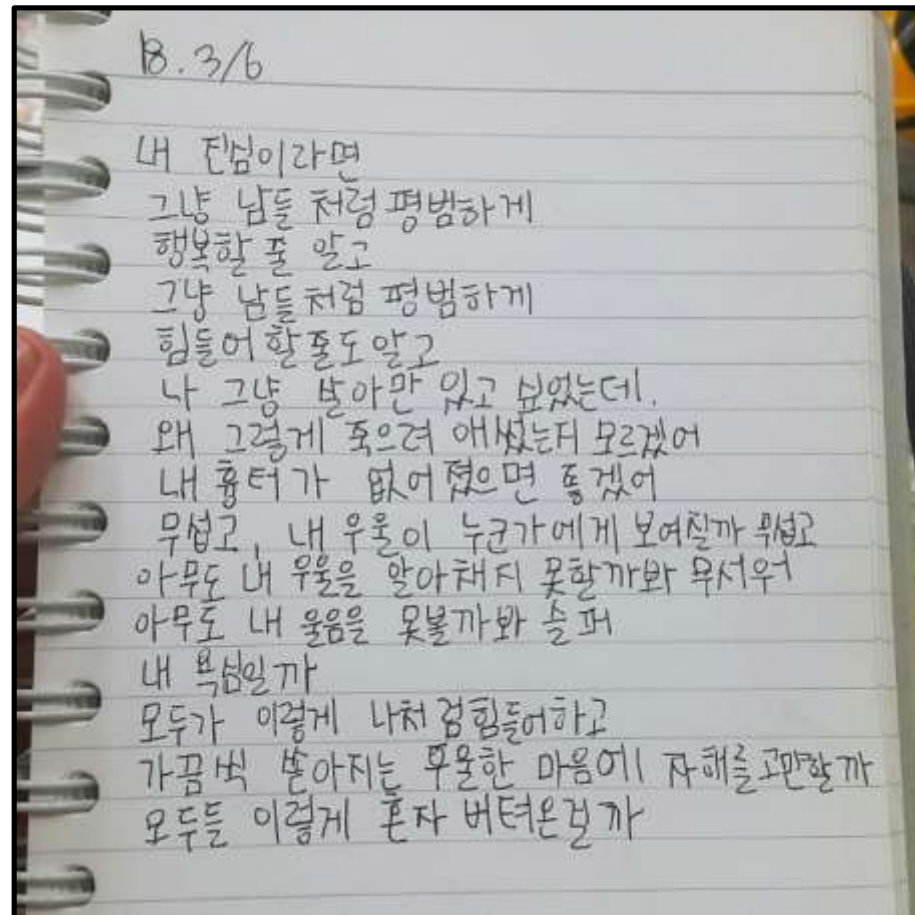 18. 3/6
내 진심이라면
그냥 남들 처럼 평범하게
행복할 줄 알고
그냥 남들처럼 평범하게
힘들어 할줄도 알고
나 그냥 살아만 있고 싶었는데.
왜 그렇게 죽으려 애썼는지 모르겠어
내 흉터가 없어졌으면 좋겠어
무섭고, 내 우울이 누군가에게 보여질까 무섭고
아무도 내 우울을 알아채지 못할까봐 무서워
아무도 내 울음을 못볼까봐 슬퍼
내 욕심일까
모두가 이렇게 나처럼힘들어하고
가끔씩 쏟아지는 우울한 마음에 자해를고민할까
모두들 이렇게 혼자 버텨온걸까